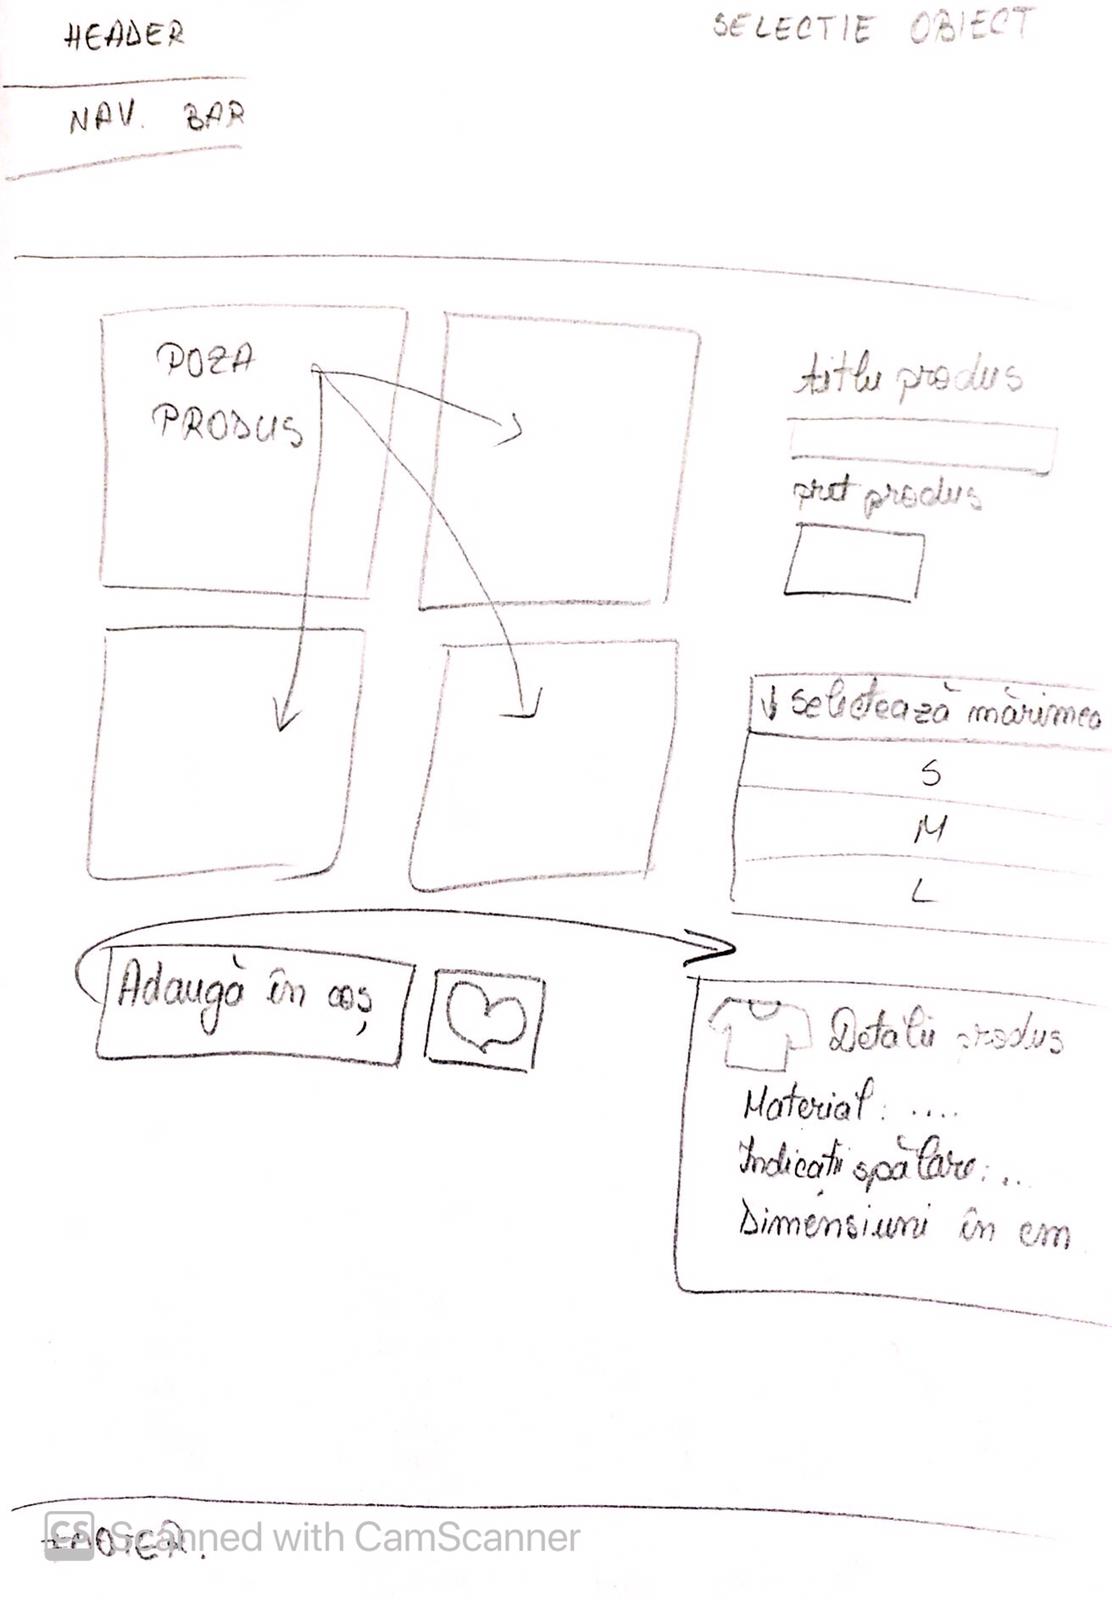 HEADER
SELECTIE OBIECT
NAV. BAR
POZA
PRODUS
titlu produs
pret produs
↓ Selectează mărimea
S
M
L
Adaugă în coș
Detalii produs
Material: ....
Indicații spălare: ...
Dimensiuni în cm
FOOTER.
CS Scanned with CamScanner